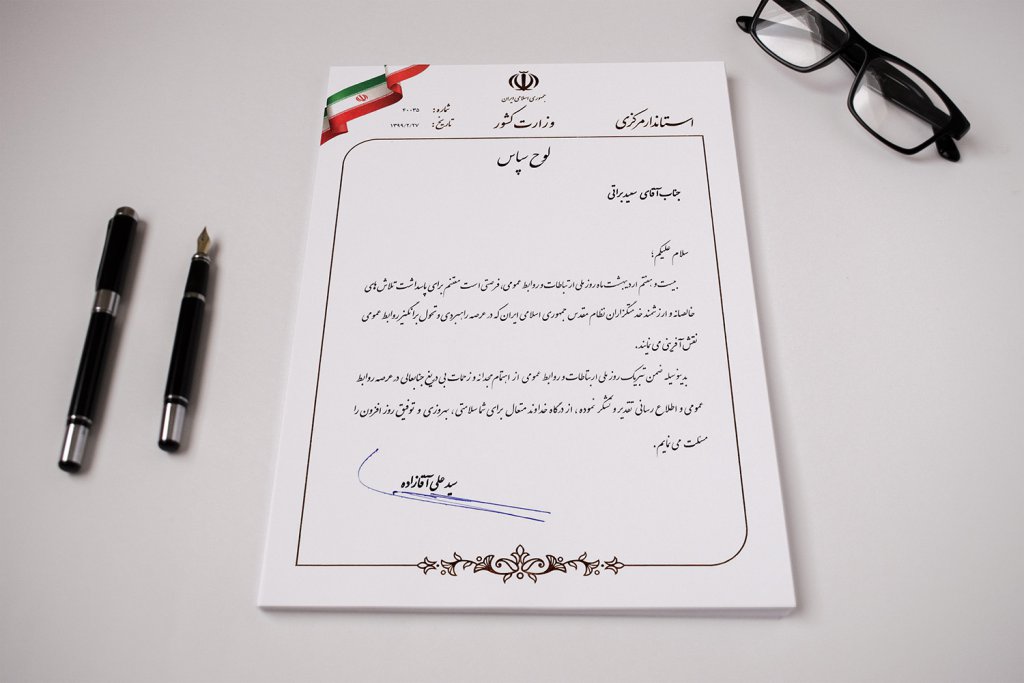 جمهوری اسلامی ایران
وزارت کشور
استاندار مرکزی
شماره: ۴۰۰۳۵
تاریخ: ۱۳۹۹/۲/۲۷
لوح سپاس
جناب آقای سعید براتی
سلام علیکم؛
بیست و هفتم اردیبهشت ماه روز ملی ارتباطات و روابط عمومی، فرصتی است مغتنم برای پاسداشت تلاش های
خالصانه و ارزشمند خدمتگزاران نظام مقدس جمهوری اسلامی ایران که در عرصه راهبردی و تحول برانگیز روابط عمومی
نقش آفرینی می نمایند.
بدینوسیله ضمن تبریک روز ملی ارتباطات و روابط عمومی از اهتمام مجدانه و زحمات بی دریغ جنابعالی در عرصه روابط
عمومی و اطلاع رسانی تقدیر و تشکر نموده، از درگاه خداوند متعال برای شما سلامتی، بهروزی و توفیق روز افزون را
مسئلت می نمایم.
سید علی آقازاده